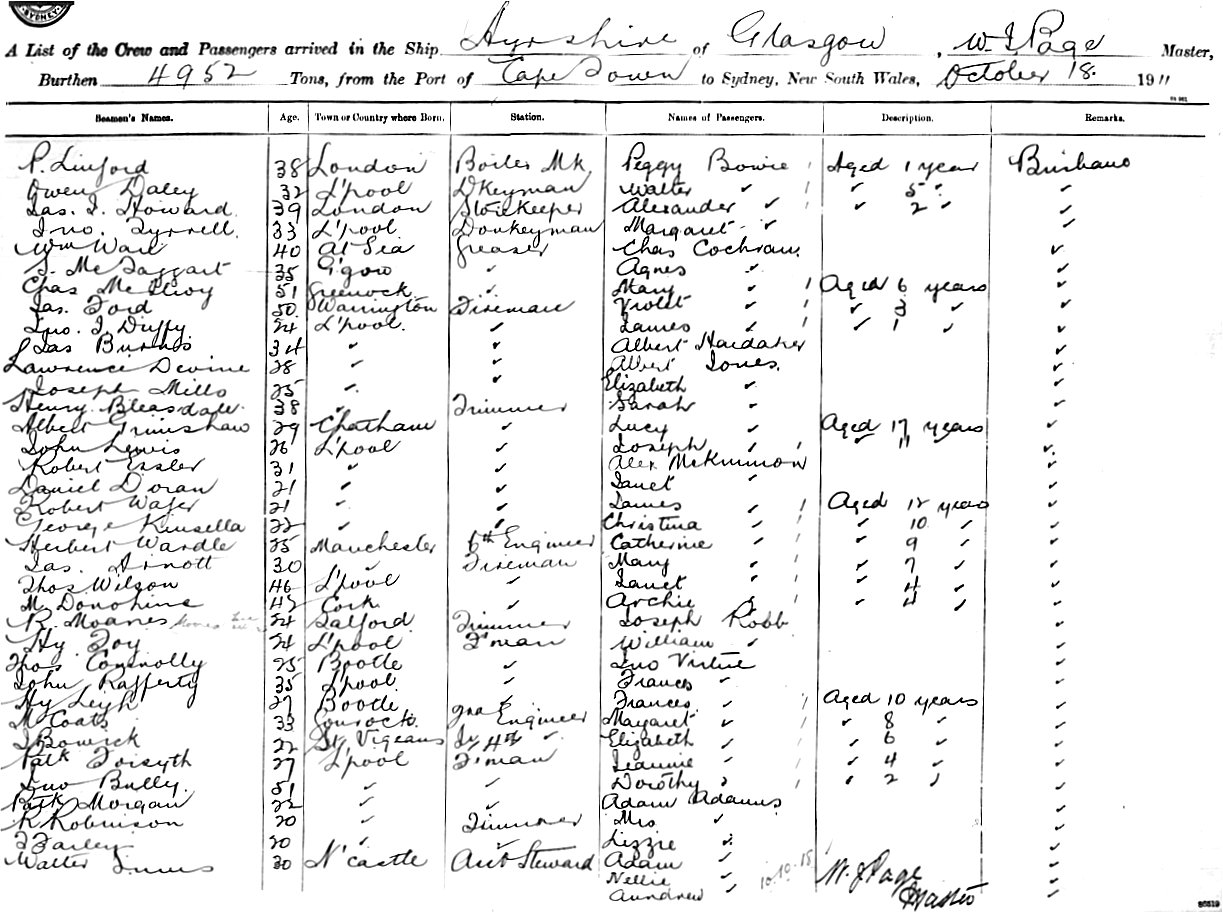 SYDNEY
A List of the Crew and Passengers arrived in the Ship Ayrshire of Glasgow, W. J. Page Master,
Burthen 4952 Tons, from the Port of Cape Town to Sydney, New South Wales, October 18. 1911
Seamen's Names. Age. Town or Country where Born. Station. Names of Passengers. Description. Remarks.
P. Linford 38 London Boiler Mk. Peggy Bowie 1 Aged 1 year Brisbane
Owen Daley 32 L'pool Dkeyman Walter ✓ 1 ✓ 5 ✓ ✓
Jas. J. Howard 39 London Storekeeper Alexander ✓ 1 ✓ 2 ✓ ✓
Jno. Tyrrell 33 L'pool Donkeyman Margaret ✓ ✓
Wm Ward 40 At Sea Greaser Chas Cochran ✓
J. Mc Taggart 35 G'gow ✓ Agnes ✓ ✓
Chas Mc Elroy 51 Greenock ✓ Mary ✓ 1 Aged 6 years ✓
Jas. Ford 50 Warrington Fireman Violet ✓ 1 ✓ 3 ✓ ✓
Jno. J. Duffy 24 L'pool. ✓ James ✓ 1 ✓ 1 ✓ ✓
Jas Burns 34 ✓ ✓ Albert Hardaker ✓
Lawrence Devine 28 ✓ ✓ Albert Jones. ✓
Joseph Mills 25 ✓ ✓ Elizabeth ✓ ✓
Henry Bleasdale 38 ✓ Trimmer Sarah ✓ ✓
Albert Grimshaw 29 Chatham ✓ Lucy ✓ Aged 17 years ✓
John Lewis 26 L'pool ✓ Joseph ✓ 1 ✓ 11 ✓
Robert Essler 31 ✓ ✓ Alex McKinnon ✓
Daniel Doran 21 ✓ ✓ Janet ✓ ✓
Robert Wafer 21 ✓ ✓ James ✓ 1 Aged 12 years ✓
George Kinsella 22 ✓ ✓ Christina ✓ 1 ✓ 10 ✓ ✓
Herbert Wardle 25 Manchester 6th Engineer Catherine ✓ 1 ✓ 9 ✓ ✓
Jas. Arnott 30 ✓ Fireman Mary ✓ 1 ✓ 7 ✓ ✓
Thos Wilson 46 L'pool ✓ Janet ✓ 1 ✓ 4 ✓ ✓
M. Donohine 42 Cork ✓ Archie ✓ 1 ✓ 4 ✓ ✓
R. Moanes 24 Salford Trimmer Joseph Robb ✓
Hy. Foy 24 L'pool F'man William ✓ ✓
Thos Connolly 25 Bootle ✓ Jno Virtue ✓
John Rafferty 35 L'pool ✓ Frances ✓ ✓
Hy Leigh 27 Bootle ✓ Frances ✓ 1 Aged 10 years ✓
M Coats 33 Gourock Engineer Margaret ✓ 1 ✓ 8 ✓ ✓
J Bowick 22 St. Vigeans 4th ✓ Elizabeth ✓ 1 ✓ 6 ✓ ✓
Patk Forsyth 27 L'pool F'man Jeannie ✓ 1 ✓ 4 ✓ ✓
Jno Bully. 51 ✓ ✓ Dorothy ✓ 1 ✓ 2 ✓ ✓
Patk Morgan 22 ✓ ✓ Adam Adams ✓
R Robinson 20 ✓ Trimmer Mrs ✓ ✓
Farley 20 ✓ ✓ Lizzie ✓ ✓
Walter Innes 30 N'castle Asst Steward Adam ✓ ✓
Nellie ✓ 10.10.18 W. J. Page ✓
Aundrew ✓ Master ✓